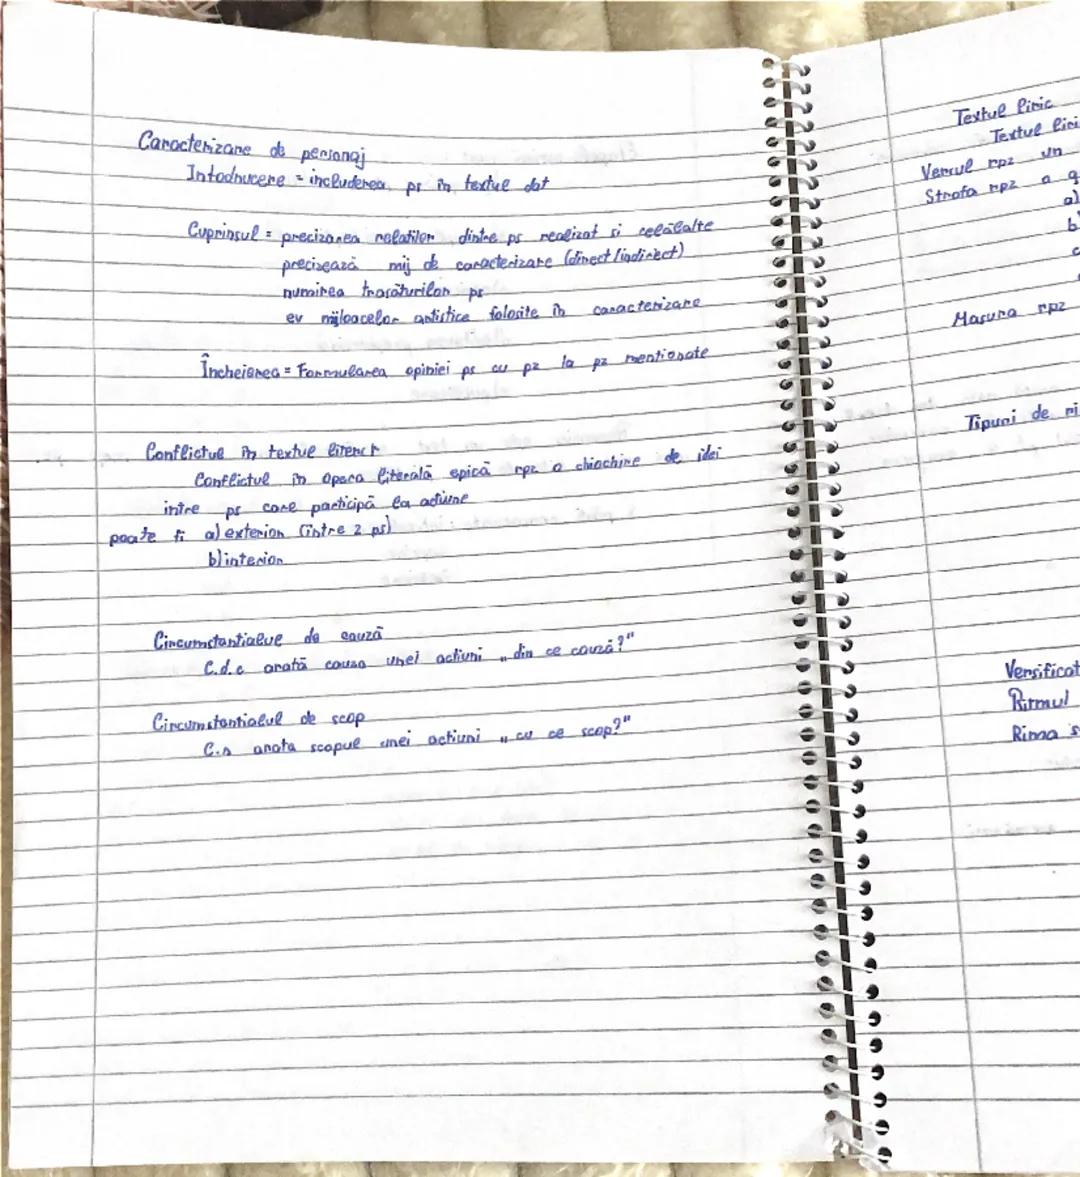 Caracterizare de personaj
Intoducere = includerea ps în textul dat
Cuprinsul = precizarea relatiilor dintre ps realizat si celălalte
precizează mij de caracterizare (direct/indirect)
numirea trasăturilor ps
ev mijloacelor artistice folosite în caracterizare
Încheierea = Formularea opiniei ps cu pz la pz mentionate
Conflictul în textul literar
Conflictul în opera literală epică rpz o chiochire de idei
intre ps care participă la actiune
poate fi a) exterior (intre 2 ps)
b) interior
Circumstantialul de cauză
C.d.c arată cauza unei actiuni „din ce cauză?"
Circumstantialul de scop
C.s arata scopul unei actiuni „cu ce scop?"
Textul liric
Textul liri
Versul rpz un
Strofa rpz o g
a)
b
c
Masura rpz
Tipuri de ri
Versificat
Ritmul
Rima s